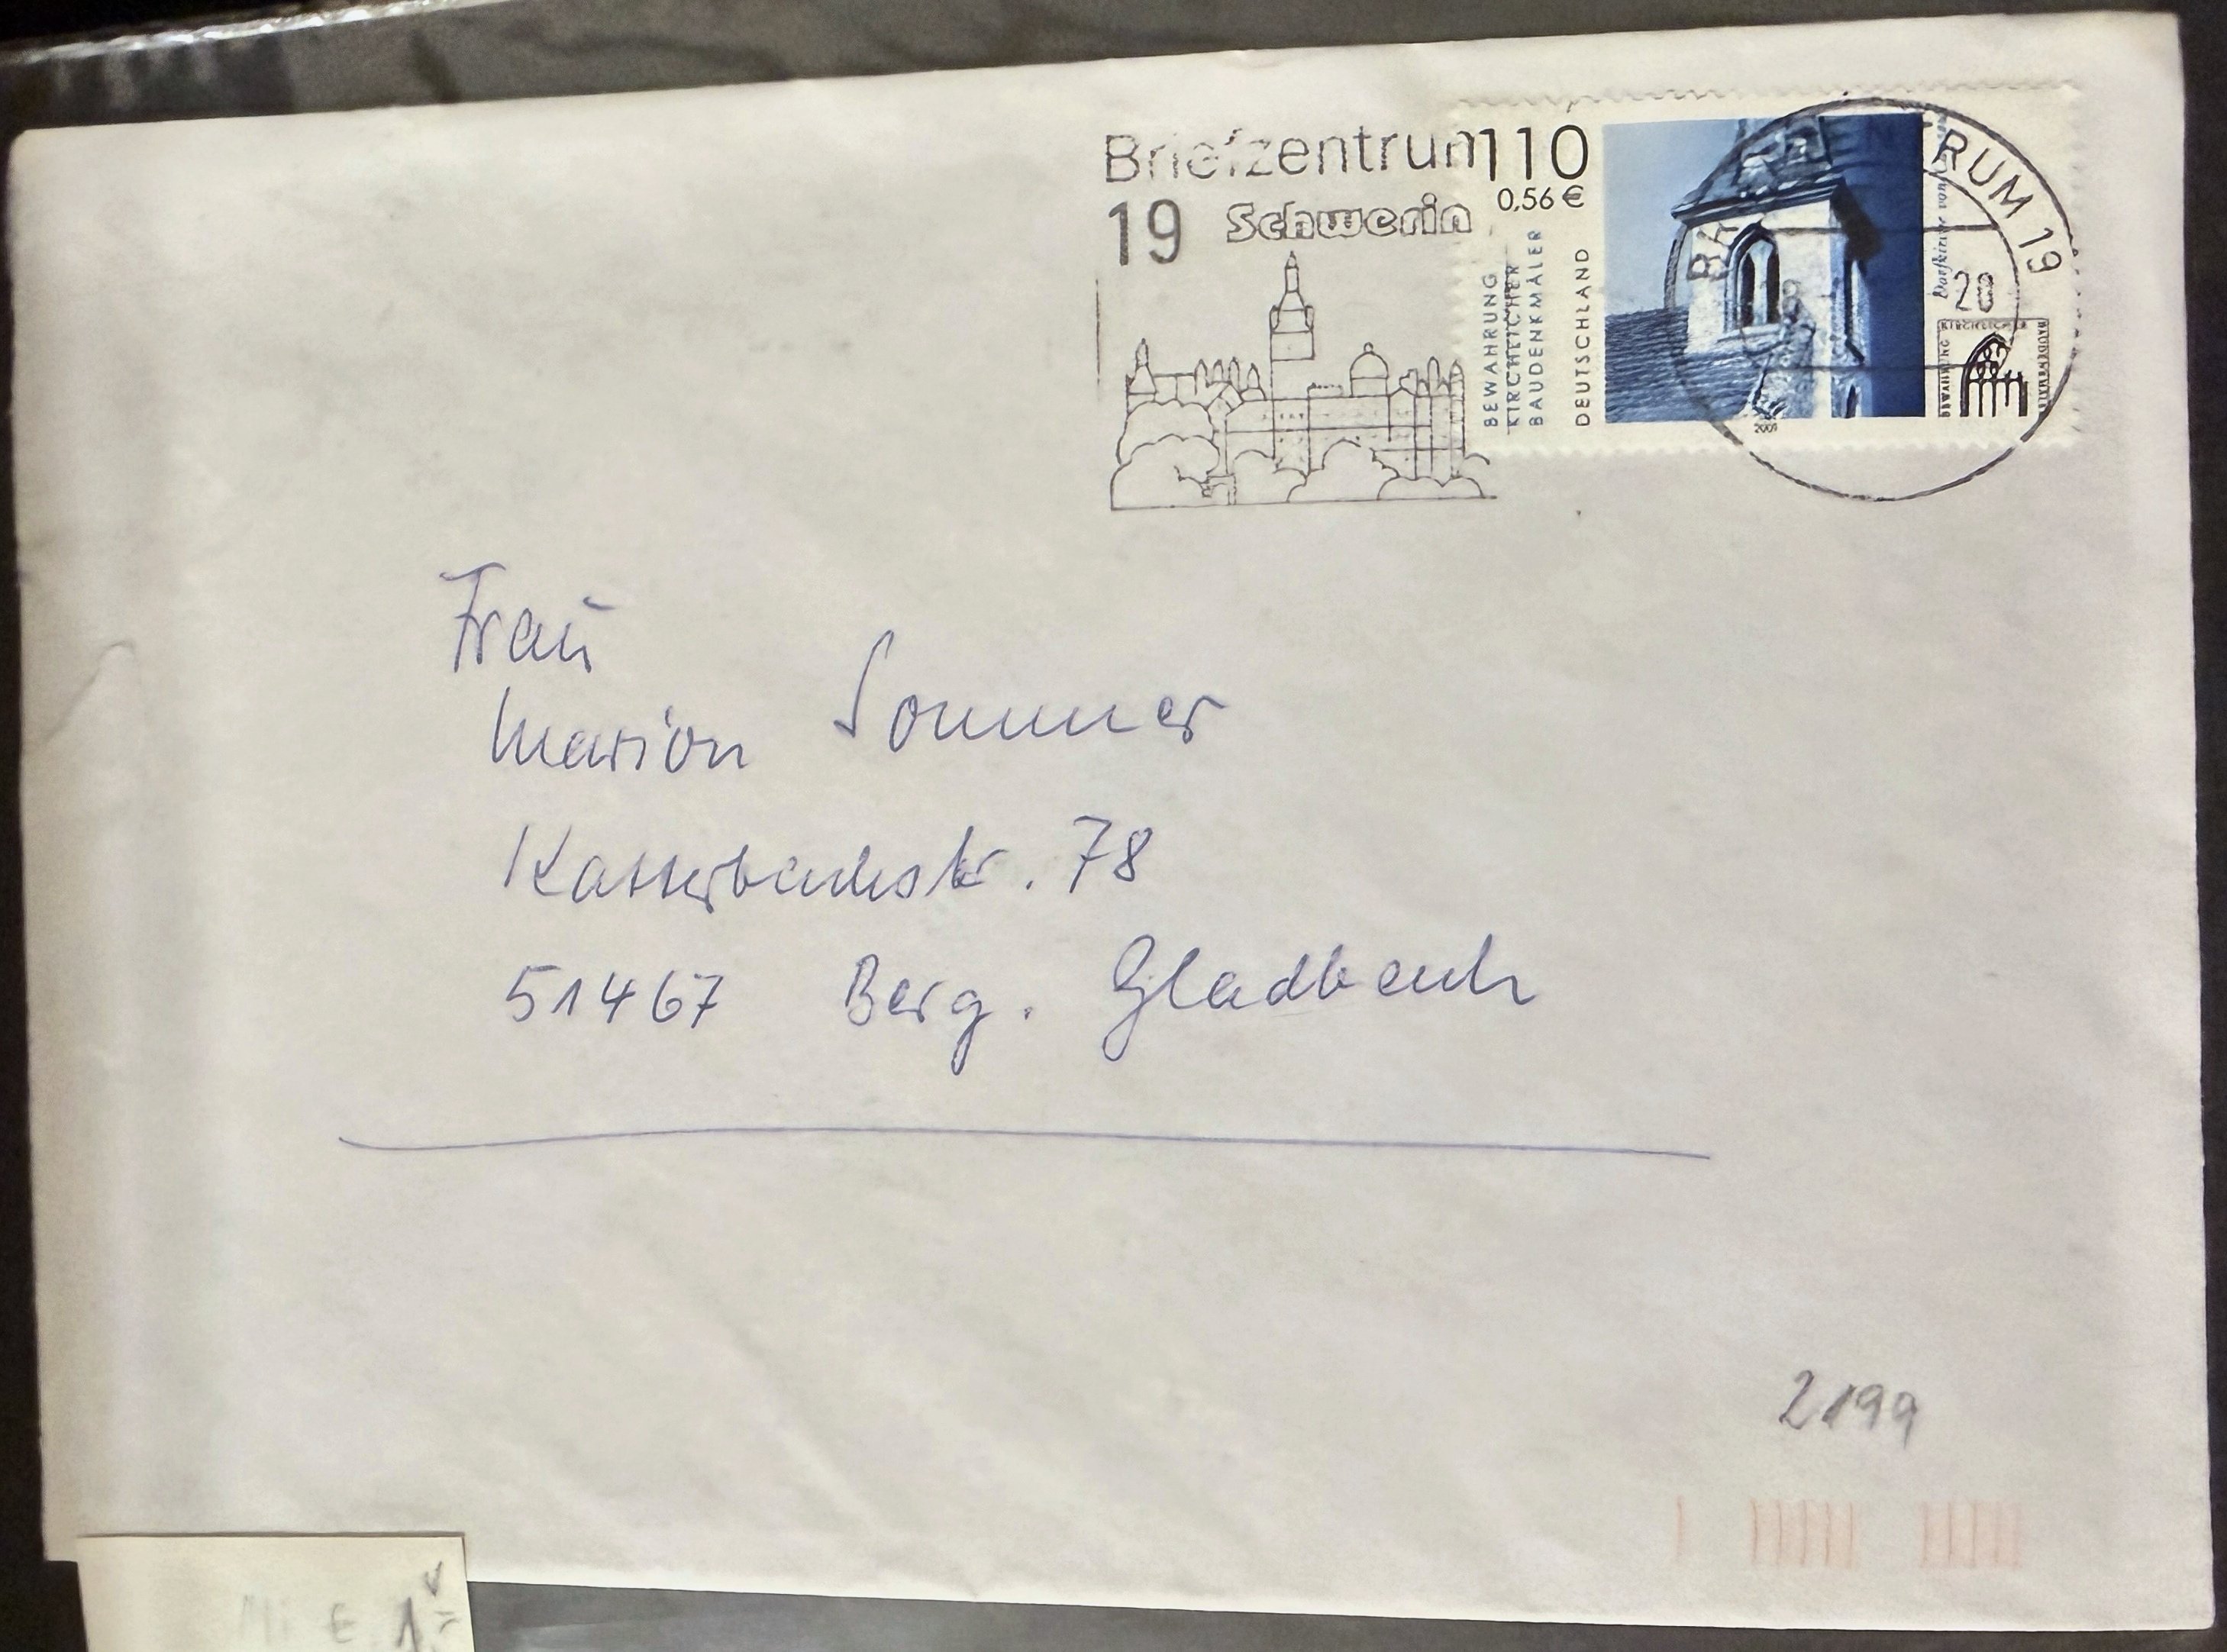 Briefzentrum
19 Schwerin
110
0,56 €
BEWAHRUNG
KIRCHLICHER
BAUDENKMÄLER
DEUTSCHLAND
2001
Dorfkirche von
KIRCHLICHER
BEWAHRUNG
BAUDENKMÄLER
RUM 19
20
Frau
Marion Sommer
Katterbachstr. 78
51467 Berg. Gladbach
2199
€ 1